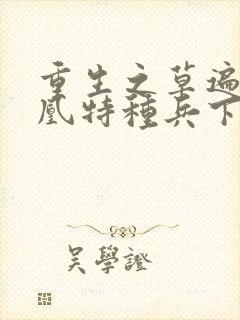 重生之草遍
凰特種兵下
吴學證